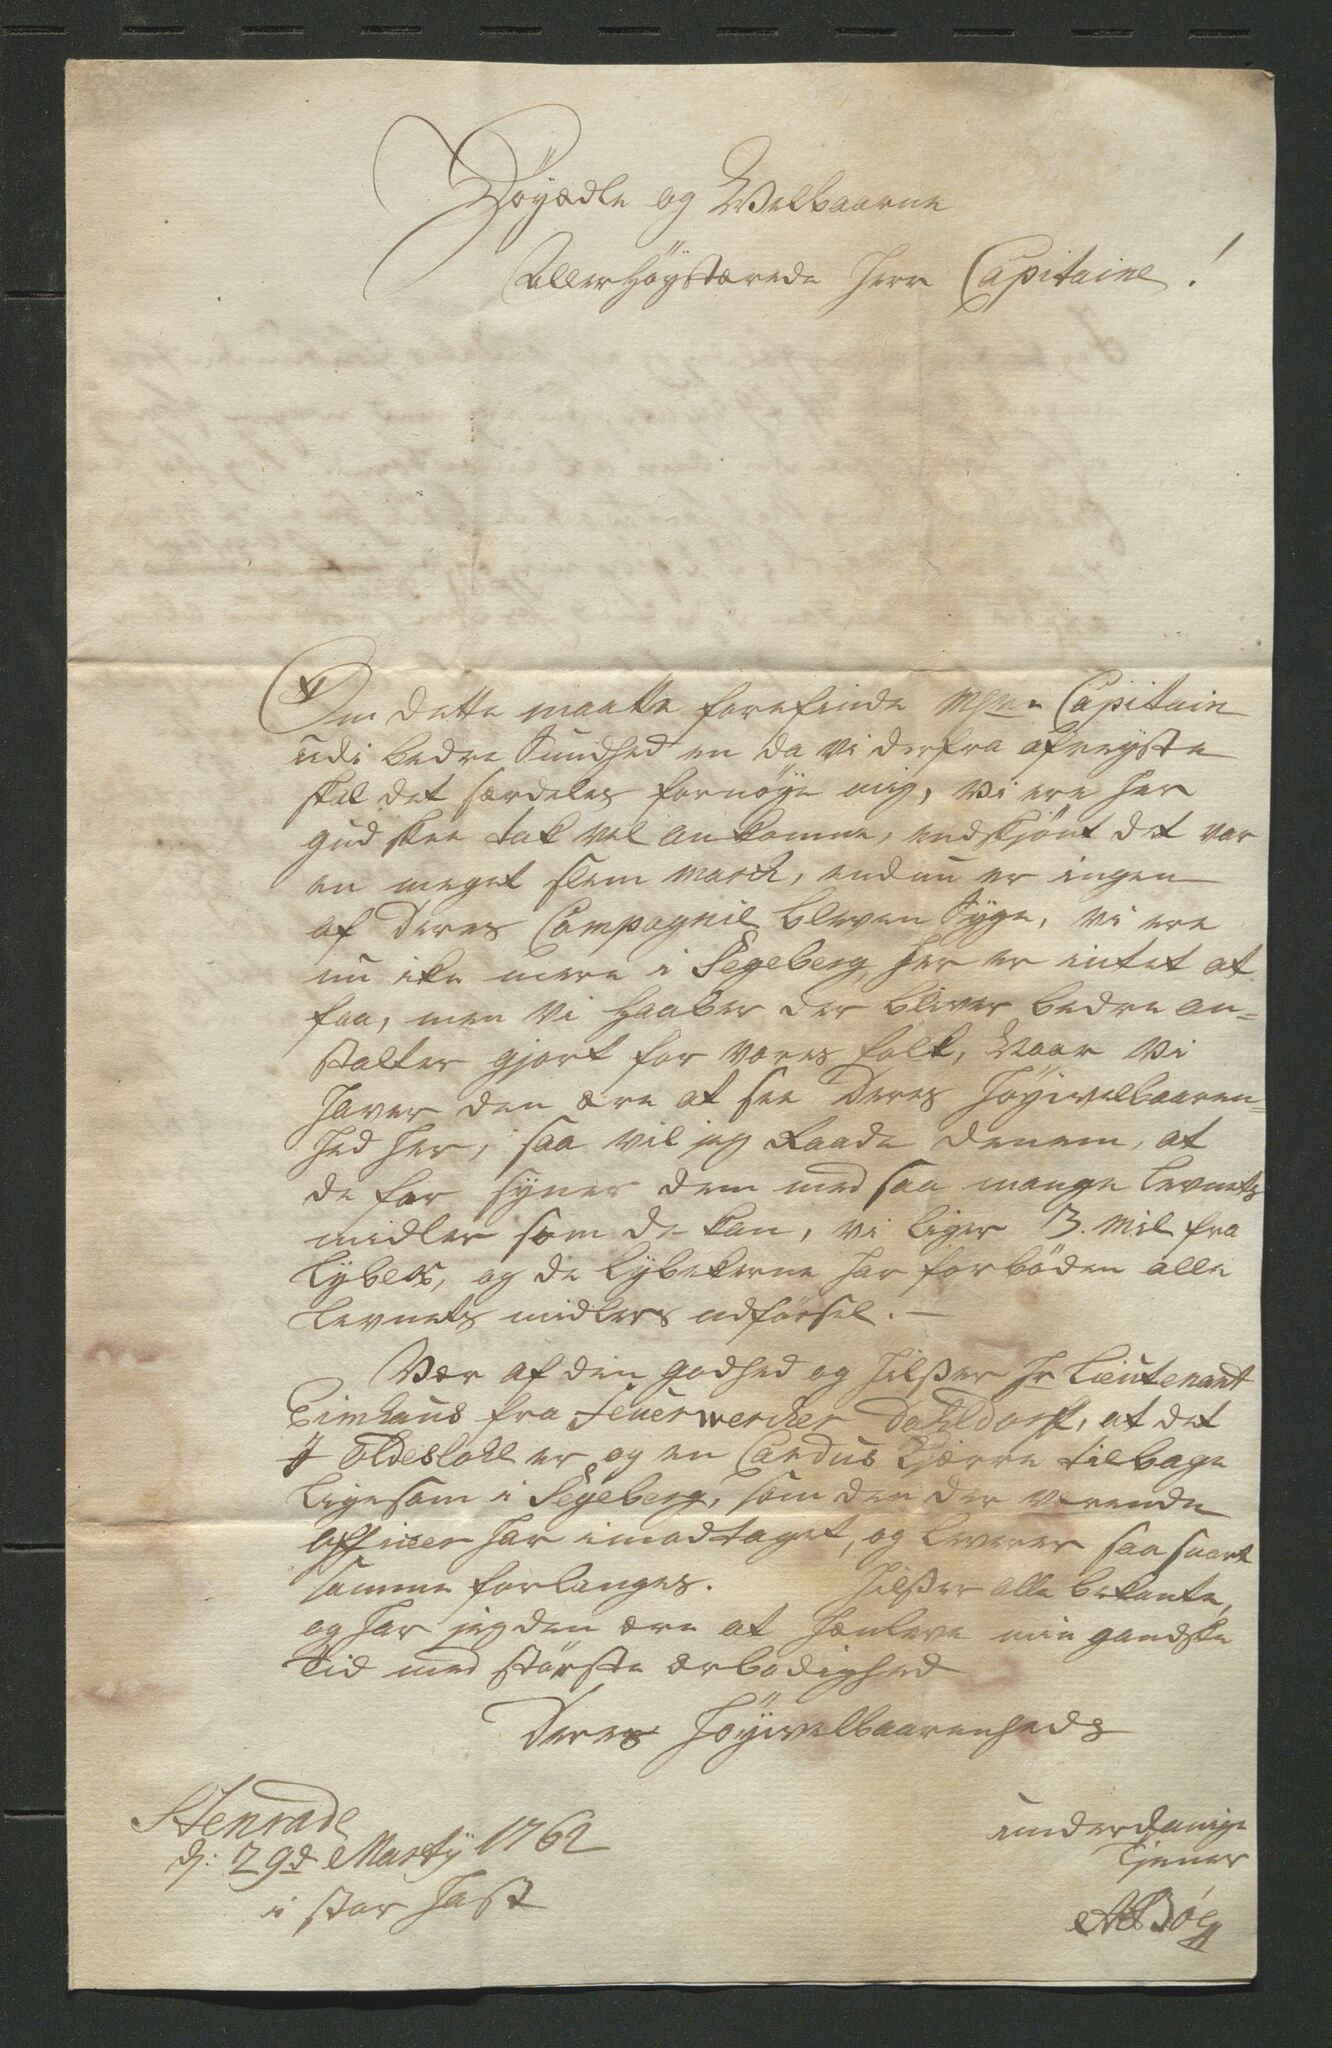 Höyædle og Velbaarne
Allerhöystærede Herr Capitaine!
Om dette maatte forefinde Capitain
udi bedre Sundhed en da vi derfra afreyste
skal det særdeles fornöye mig, vi ere her
gud skee tak vel ankomne, endskjönt det var
en meget slem March, endnu er ingen
af Deres Compagnie bleven Syge, vi ere
nu ike mere i Segeberg, her er intet at
faa, men vi haaber der bliver bedre an=
stalter gjort for vores folk, Naar vi
haver den ære at see Deres Höyvelbaaren=
hed her, saa vil jeg Raade Denem, at
de for syner dem med saa mange levnets
midler som de kan, vi liger 3. Mil fra
Lybek, og de Lybekerne har forböden alle
levnets midlers udförsel. —
Vær af den godhed og hilßer Hr Lieutenant
Bimhaus fra Feuerwercker Dahldorf, at det
J Oldeslohe er og en Cardus Kjærre tilbage
ligesom i Segeberg, som den der verende
officer har imodtaget, og leverer saa snart
samme forlanges. hilßer alle bekante,
og har jeg den ære at henleve min gandske
Tid med störste ærbödighed
Deres Höyvelbaarenheds
Stenrade
d: 29d Marty 1762
i stor Hast
underdanige
Tjener
ABöeg